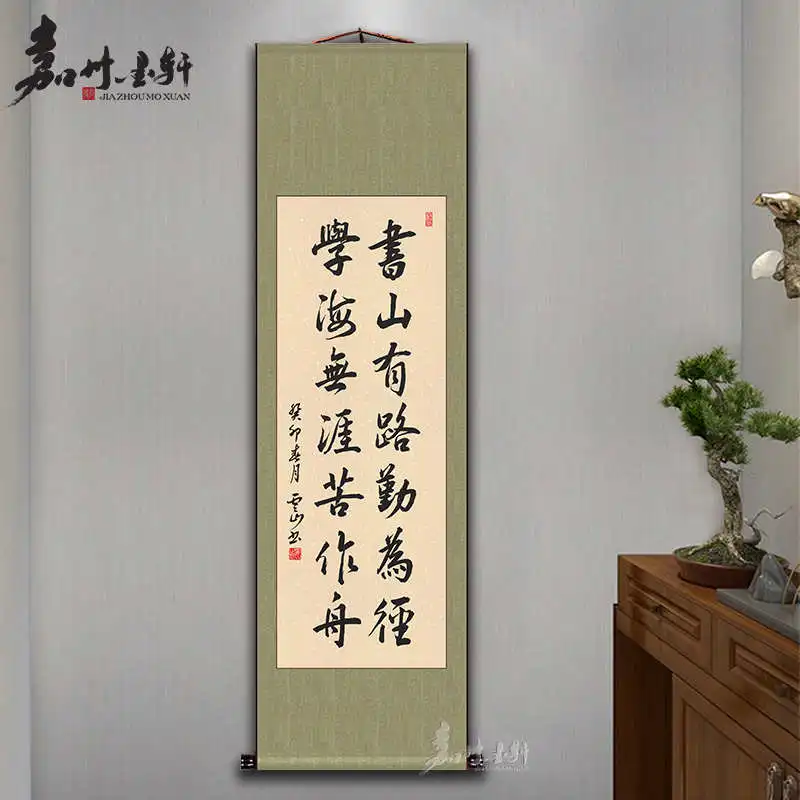 嘉州墨轩
JIAZHOUMOXUAN
書山有路勤為徑
學海無涯苦作舟
癸卯春月 雲山书
嘉州墨轩